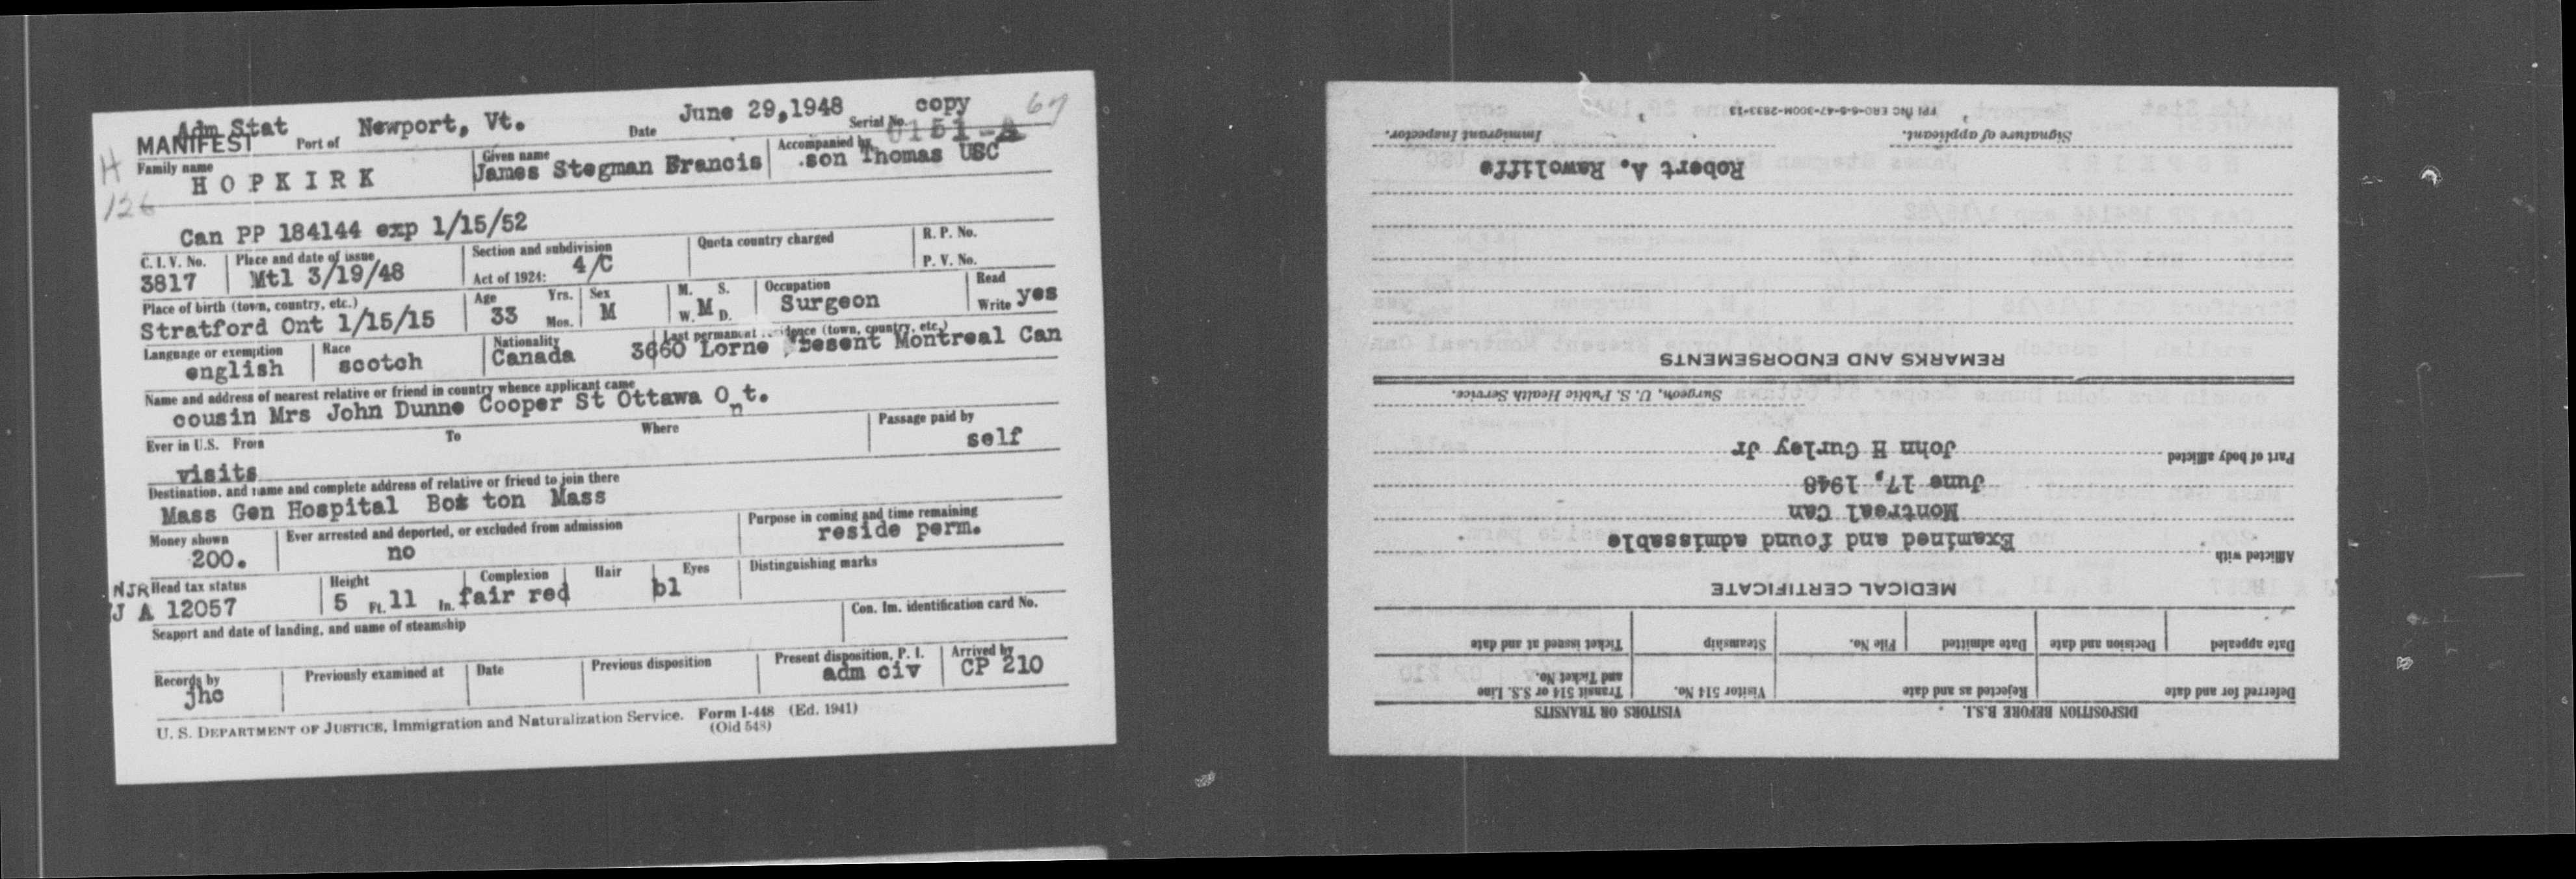 Adm Stat
MANIFEST Port of Newport, Vt. Date June 29,1948 Serial No. copy 0151-A 67
H 126
Family name HOPKIRK Given name James Stegman Francis Accompanied by son Thomas USC
Can PP 184144 exp 1/15/52
C. I. V. No. 3817 Place and date of issue Mtl 3/19/48 Section and subdivision Act of 1924: 4/C Quota country charged R. P. No. P. V. No.
Place of birth (town, country, etc.) Stratford Ont 1/15/15 Age 33 Yrs. Mos. Sex M M. S. W. M D. Occupation Surgeon Read Write yes
Language or exemption english Race scotch Nationality Canada Last permanent residence (town, country, etc.) 3660 Lorne Montreal Can
Name and address of nearest relative or friend in country whence applicant came
cousin Mrs John Dunne Cooper St Ottawa Ont.
Ever in U.S. From To Where Passage paid by self
visits
Destination, and name and complete address of relative or friend to join there
Mass Gen Hospital Bos ton Mass
Money shown 200. Ever arrested and deported, or excluded from admission no Purpose in coming and time remaining reside perm.
NJR Head tax status J A 12057 Height 5 Ft. 11 In. Complexion fair Hair red Eyes bl Distinguishing marks
Seaport and date of landing, and name of steamship Con. Im. identification card No.
Records by jhc Previously examined at Date Previous disposition Present disposition, P. I. adm civ Arrived by CP 210
U. S. DEPARTMENT OF JUSTICE, Immigration and Naturalization Service. Form I-448 (Ed. 1941)
(Old 548)
DISPOSITION BEFORE B.S.I. VISITORS OR TRANSITS
Deferred for and date Rejected as and date Visitor 514 No. Transit 514 or S.S. Line and Ticket No.
Date appealed Decision and date Date admitted File No. Steamship Ticket issued at and date
MEDICAL CERTIFICATE
Afflicted with Examined and found admissable
Montreal Can
June 17, 1948
Part of body afflicted John H Curley Jr
Surgeon, U. S. Public Health Service.
REMARKS AND ENDORSEMENTS
Robert A. Rawcliffe
Signature of applicant. Immigrant Inspector.
FPI INC ERO-6-5-47-300M-2833-13